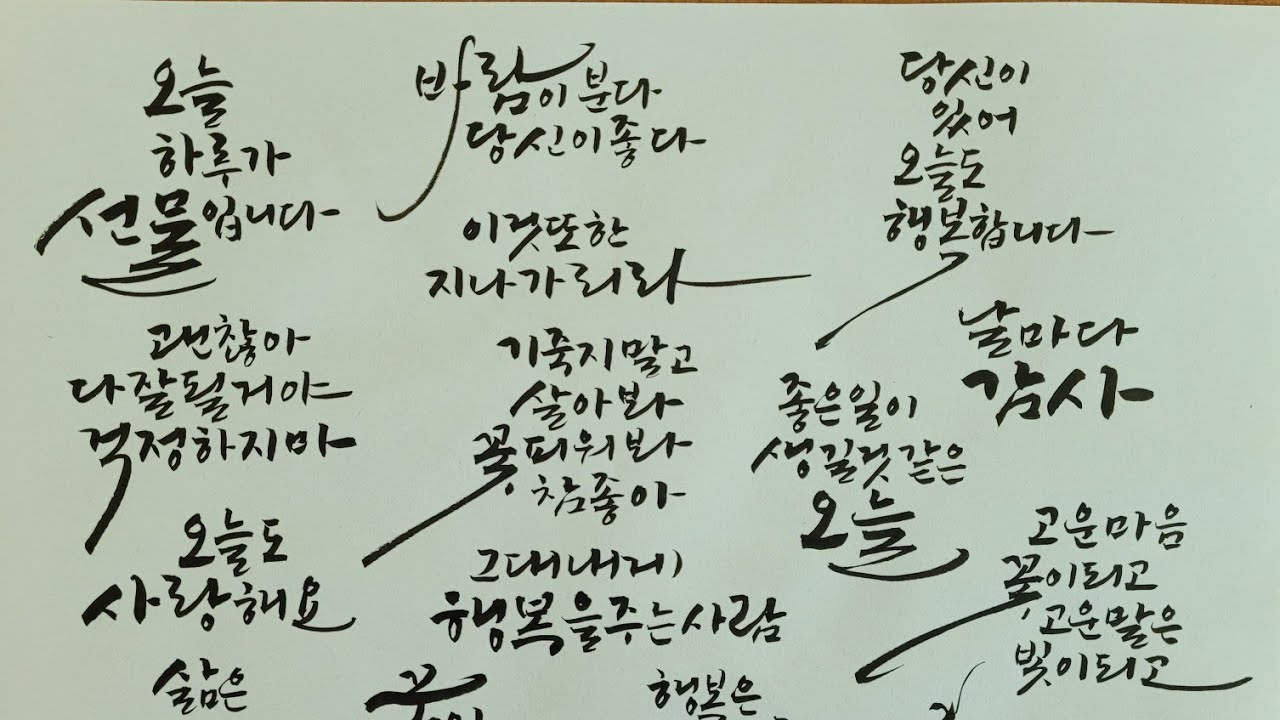 오늘
하루가
선물입니다
괜찮아
다잘될거야
걱정하지마
오늘도
사랑해요
삶은
바람이분다
당신이좋다
이것또한
지나가리라
기죽지말고
살아봐
꽃피워봐
참좋아
그대내게
행복을주는사람
행복은
당신이
있어
오늘도
행복합니다
날마다
감사
좋은일이
생길것같은
오늘
고운마음
꽃이되고
고운말은
빛이되고